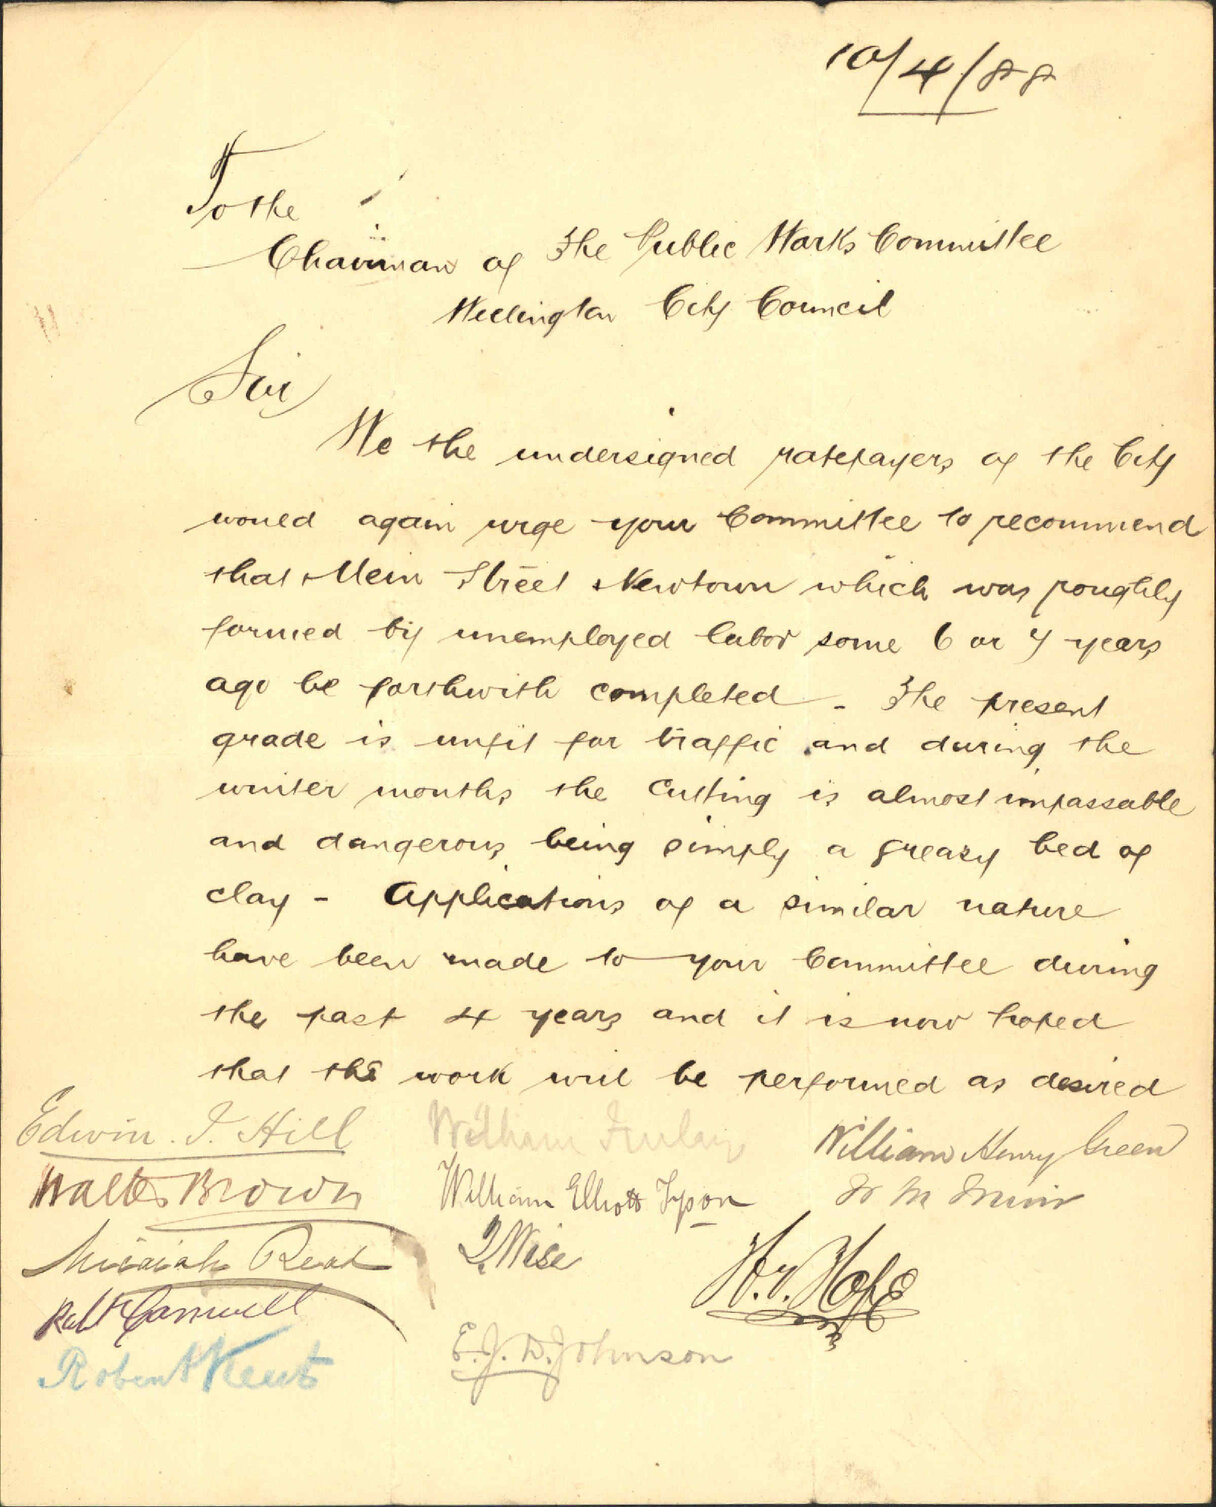 10/4/88
To the
Chairman of The Public Works Committee
Wellington City Council
Sir
We the undersigned ratepayers of the City
would again urge your Committee to recommend
that Mein Street Newtown which was roughly
formed by unemployed labor some 6 or 7 years
ago be forthwith completed - The present
grade is unfit for traffic and during the
winter months the Cutting is almost impassable
and dangerous being simply a greasy bed of
clay - Applications of a similar nature
have been made to your Committee during
the past 4 years and it is now hoped
that the work will be performed as desired
Edwin. J. Hill
William Finlay
William Henry Green
Walter Brown
William Elliott Tyson
Read
J. Wise
W. J. Hope
Robt
E. J. D. Johnson
Robert Kent